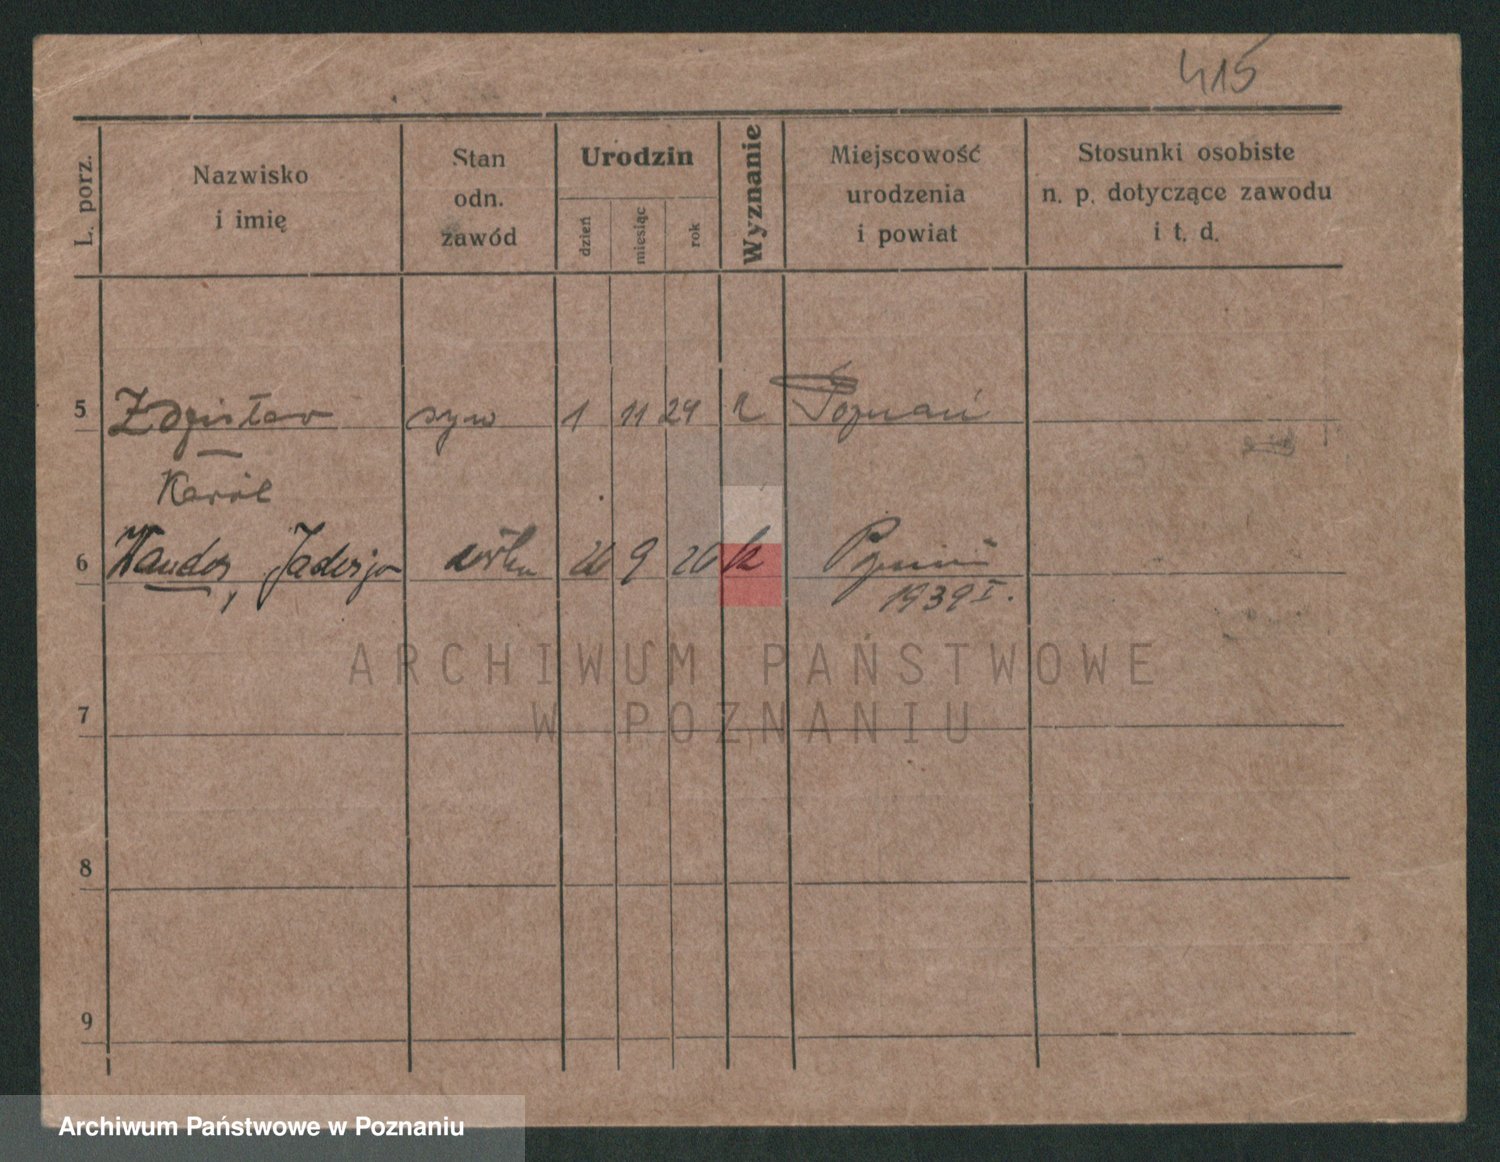 415
L. porz.
Nazwisko
i imię
Stan
odn.
zawód
Urodzin
dzień
miesiąc
rok
Wyznanie
Miejscowość
urodzenia
i powiat
Stosunki osobiste
n. p. dotyczące zawodu
i t. d.
5 Zdzisław syn 1 11 29 k Poznań
Karól
6 Wanda, Jadwiga córka 20 9 20 k Poznań
1939 I.
ARCHIWUM PAŃSTWOWE
W POZNANIU
7
8
9
Archiwum Państwowe w Poznaniu